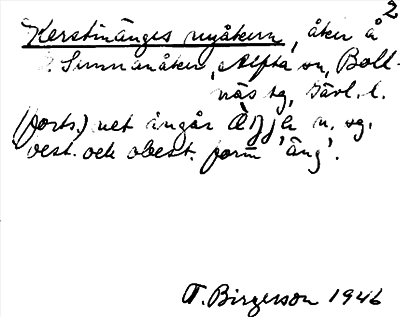 2
Kerstinänges nyåkern, åker å
Simmanåker, Alfta sn, Boll-
näs tg, Gävl. l.
(forts.) net ingår äŋjh n. sg.
best. och obest. form 'äng'.
T. Birgerson 1946